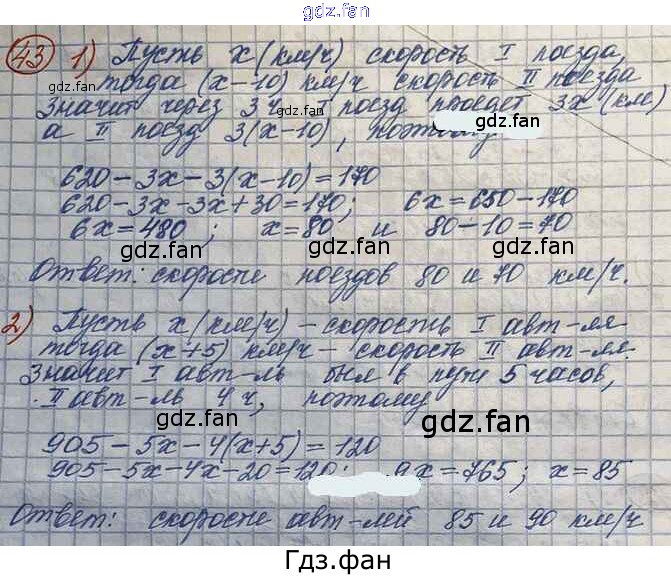 gdz.fan
43 1) Пусть x (км/ч) скорость I поезда,
тогда (x-10) км/ч скорость II поезда
gdz.fan
Значит через 3 ч I поезд проедет 3x (км)
gdz.fan
а II поезд 3(x-10), поэтому
gdz.fan
620-3x-3(x-10)=170
620-3x-3x+30=170; 6x=650-170
6x=480; x=80 и 80-10=70
gdz.fan gdz.fan
Ответ: скорости поездов 80 и 70 км/ч.
gdz.fan
2) Пусть x (км/ч) - скорость I авт-ля
тогда (x+5) км/ч - скорость II авт-ля.
gdz.fan
Значит I авт-ль был в пути 5 часов,
II авт-ль 4 ч, поэтому
gdz.fan gdz.fan
905-5x-4(x+5)=120
905-5x-4x-20=120; 9x=765; x=85
gdz.fan
Ответ: скорости авт-лей 85 и 90 км/ч
gdz.fan
Гдз.фан